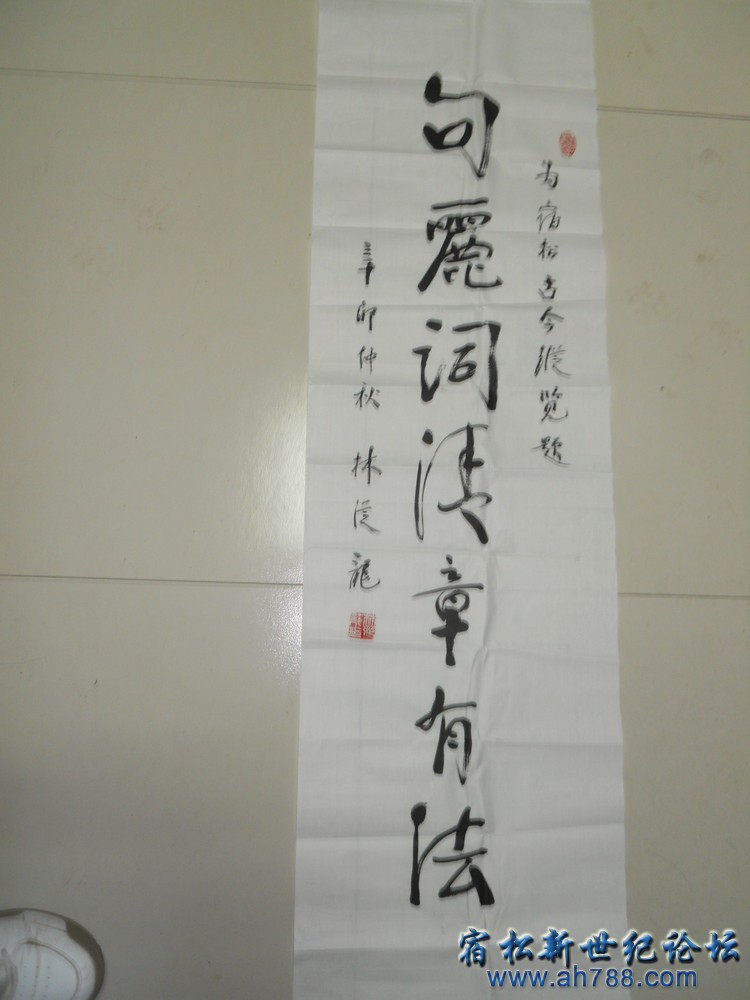 为宿松古今纵览题
句麗词清章有法
辛卯仲秋 林从龍
宿松新世纪论坛
www.ah788.com